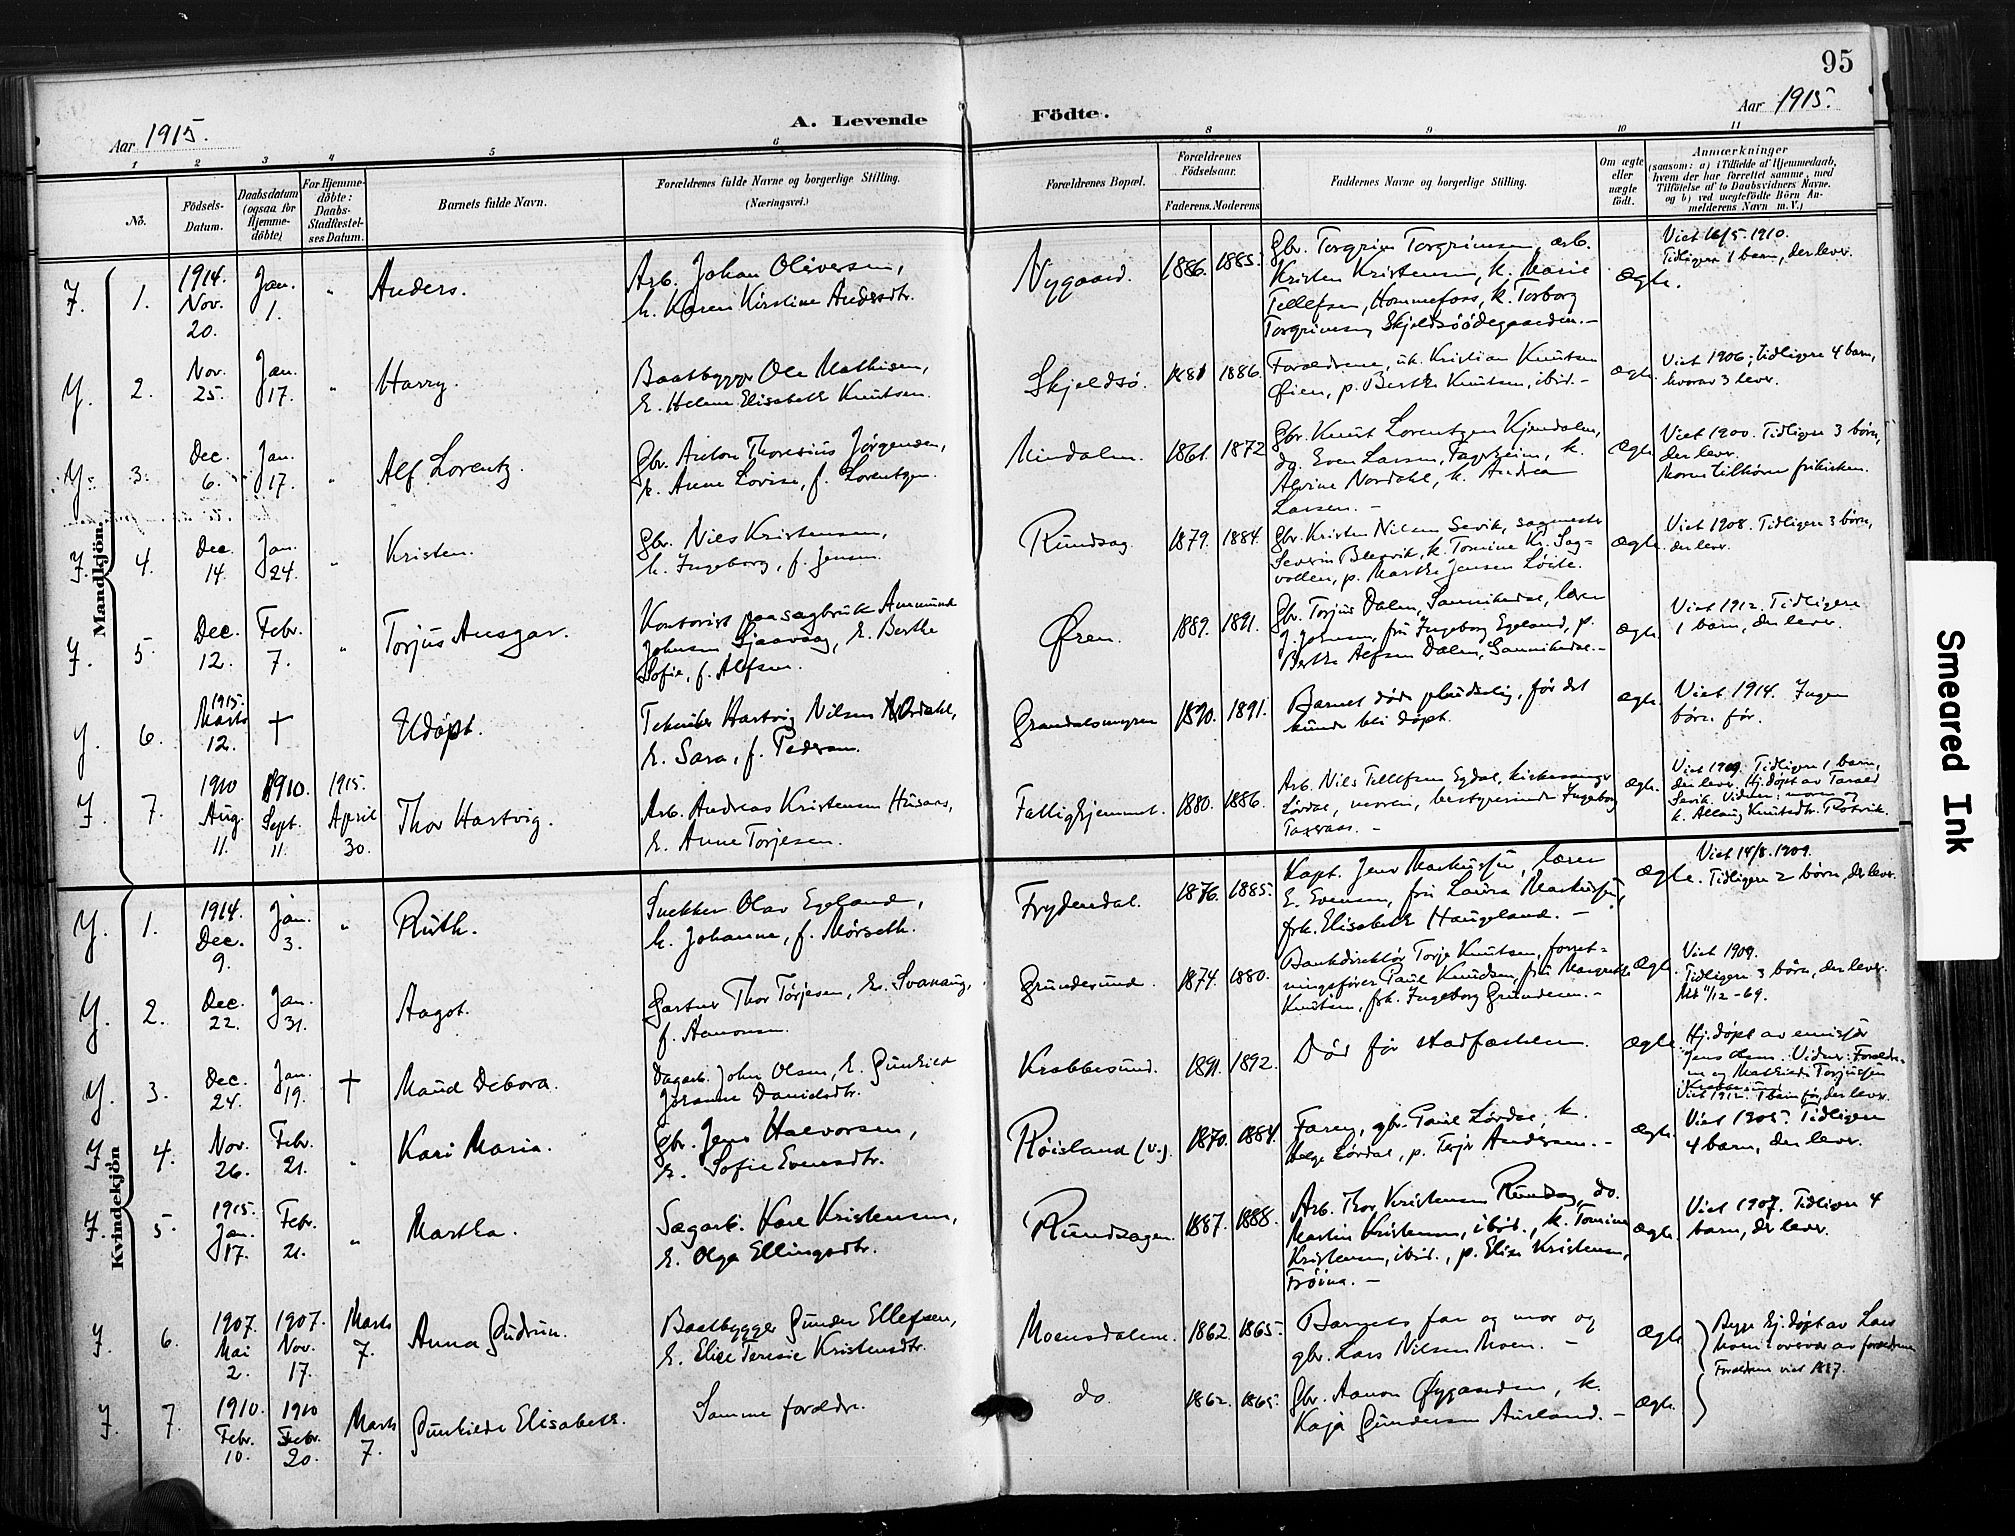 95
Aar 1915.
A. Levende
Födte.
Aar 1915.
1 2 3 4 5 6 8 9 10 11
No.
Födsels-
Datum.
Daabsdatum
(ogsaa for
Hjemme-
döbte)
For Hjemme-
döbte:
Daabs-
Stadfestel-
ses Datum.
Barnets fulde Navn.
Forældrenes fulde Navne og borgerlige Stilling.
(Næringsvei.)
Forældrenes Bopæl.
Forældrenes
Födselsaar.
Faderens. Moderens
Faddernes Navne og borgerlige Stilling.
Om ægte
eller
uægte
født.
Anmærkninger
(saasom: a) i Tilfælde af Hjemmedaab,
hvem der har forrettet samme, med
Tilföielse af to Daabsvidners Navne,
og b) ved uægtefödte Börn An-
melderens Navn m. V.)
Mandkjön.
1. 1914. Nov. 20. Jan. 1. " Anders.
Arb. Johan Oliversen,
h. Karen Kirstine Andersdtr.
Nygaard. 1886. 1885.
Gbr. Torgrim Torgrimsen, arb.
Kristen Kristensen, k. Marie
Tellefsen, Hommefoss, k. Torborg
Torgrimsen Skjeldsöödegaarden.-
Ægte.
Viet 16/5 1910.
Tidligere 1 barn, der lever.
2. Nov. 25. Jan. 17. " Harry.
Baatbygger Ole Mathisen,
h. Helene Elisabeth Knutsen.
Skjeldsö. 1881 1886.
Forældrene, uk. Kristian Knutsen
Øien, p. Berthe Knutsen, ibid.-
ægte.
Viet 1906. Tidligere 4 barn,
hvorav 3 lever.
3. Dec. 6. Jan. 17. " Alf Lorentz.
Gbr. Anton Thoresius Jørgensen,
h. Anne Lovise, f. Lorentzen.
1861. 1872
Gbr. Knut Lorentzen Kjendalen,
dg. Even Larsen, Fagerheim, k.
Alvine Nordahl, k. Andrea
Larsen. -
Ægte
Viet 1900. Tidligere 3 børn,
der lever.
Moren tilhører frikirken.
4. Dec. 14. Jan. 24. " Kristen.
Gbr. Niels Kristensen,
h. Ingeborg, f. Jensen.
Rundsag 1879. 1884.
Gbr. Kristen Nilsen Sevik, sagmester
Severin Blesvik, k. Tomine Kr. Sag-
vollen, p. Marthe Jensen Löite.
ægte.
Viet 1908. Tidligere 3 børn,
der lever.
5. Dec. 12. Febr. 7. " Torjus Ansgar.
Kontorist paa sagbruk Ammund
Johnsen Gjaavaag, h. Berthe
Sofie, f. Alfsen.
Øren. 1889. 1891.
Gbr. Torjus Dalen, Sannikedal, lærer
J. Johnsen, fru Ingeborg Egeland, p.
Berthe Alfsen Dalen, Sannikedal.-
ægte.
Viet 1912. Tidligere
1 barn, der lever.
6. 1915. Marts 12. † Udöpt.
Tekniker Hartvig Nilsen Nordahl,
h. Sara, f. Pedersen.
Grandalsmyren 1890. 1891.
Barnet døde pludselig, før det
kunde bli døpt.
ægte.
Viet 1914. Ingen
børn før.
7. 1910 Aug. 11. 1910. Sept. 11. 1915. April 30. Thor Hartvig.
Arb. Andreas Kristensen Husaas,
h. Anne Torjesen.
Fattighjemmet. 1880. 1886.
Arb. Niels Tellefsen Egdal, kirkesanger
Lördal, moren, bestyrerinde Ingeborg
Taxeraas. -
ægte.
Viet 1909. Tidligere 1 barn,
der lever. Hj.døpt av Tarald
Sevik. Vidner: moren og
k. Allaug Knutsdtr. Rörvik.
Kvindekjön
1. 1914. Dec. 9. Jan. 3. " Ruth.
Snekker Olav Egeland,
h. Johanne, f. Mørseth.
Frydendal. 1876. 1885.
Kapt. Jens Markussen, lærer
E. Evensen, fru Laura Markussen,
frk. Elisabeth Haugeland. -
Ægte.
Viet 14/8. 1909.
Tidligere 2 børn, der lever.
2. Dec. 22. Jan. 31. Aagot.
Gartner Thor Tørjesen, h. Svanaug,
f. Aanonsen.
Grundesund. 1874. 1880.
Bankdirektör Torje Knutsen, forret-
ningsfører Paul Knudsen, fru Margrethe
Knutsen, frk. Ingeborg Grundesen.-
Ægte.
Viet 1909.
Tidligere 3 børn, der lever.
11/12 -69.
3. Dec. 24. Jan. 19. † Maud Debora.
Dagarb. John Olsen, h. Gunhild
Josanne Danielsdtr.
Krabbesund. 1891. 1892.
Död för stadfæstelsen.
ægte
Hj.døpt av emissær
Jens Olsen. Vidner: Foreldre-
ne og Mathilde Torjussen
Krabbesund
Viet 1912. 1 barn før, der lever.
4. Nov. 26. Febr. 21. " Kari Maria.
Gbr. Jens Halvorsen,
h. Sofie Evensdtr.
Røisland (v.). 1870. 1884.
Faren, gbr. Paul Lördal, k.
Helge Lördal, p. Terje Andersen.-
ægte.
Viet 1905. Tidligere
4 barn, der lever.
5. 1915. Jan. 17. Febr. 21. " Martha.
Sagarb. Karl Kristensen,
h. Olga Ellingsdtr.
Rundsagen. 1887. 1888.
Arb. Thor Kristensen Rundsag, do.
Martin Kristensen, ibid., k. Tomine
Kristensen, ibid., p. Elise Kristensen,
Fröina. -
ægte.
Viet 1907. Tidligere 4
barn, der lever.
6. 1907. Mai 2. 1907. Nov. 17. Marts 7. Anna Gudrun.
Baatbygger Gunder Ellefsen,
h. Elise Teresie Kristensdtr.
Moensdalen. 1862. 1865.
Barnets far og mor og
gbr. Lars Nilsen Moen. -
ægte
Begge hj.døpt av Lars
Moen i overvær av foreldrene
Foreldrene viet 1887.
7. 1910. Febr. 10. 1910 Febr. 20. Marts 7. Gunhilde Elisabeth.
Samme foreldre.
do. 1862. 1865.
Gbr. Aanon Øygarden, k.
Kaja Gundersen Ausland. -
ægte.
Smeared Ink